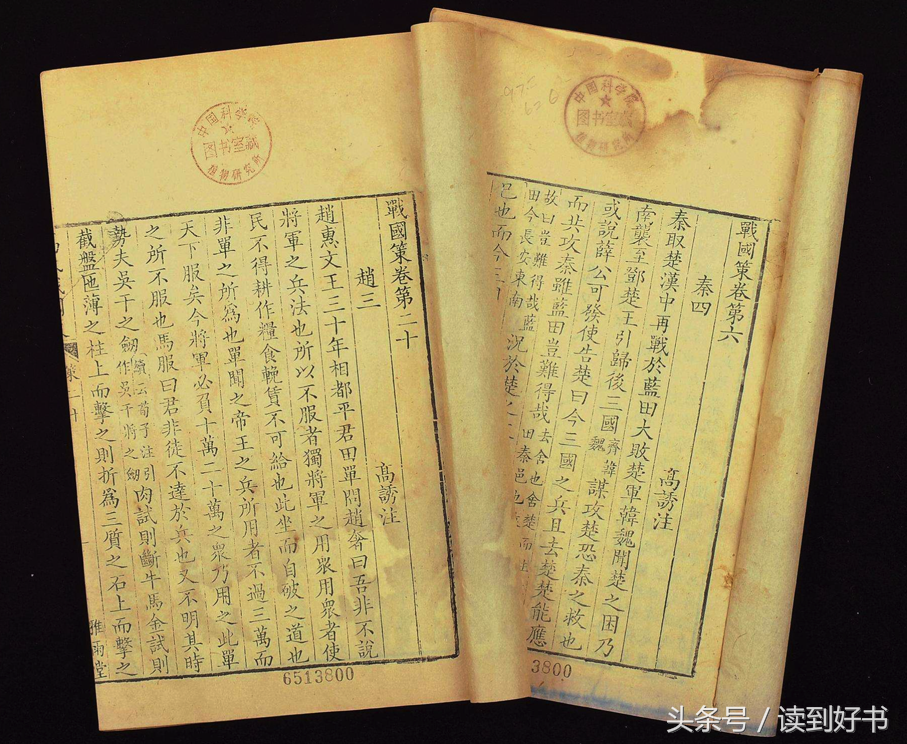 戰國策卷第六
秦四
髙誘注
秦取楚漢中再戰於藍田大敗楚軍韓魏聞楚之困乃
南襲至鄧楚王引歸後三國齊韓魏謀攻楚恐秦之救也
或說薛公可發使告楚曰今三國之兵且去楚楚能應
而共攻秦雖藍田豈難得哉去舍也舍楚而
田秦邑也
故曰豈難得哉藍
田今長安東南
邑也而今三
況於楚之
中国科学院
图书室藏
植物研究所
3800
戰國策卷第二十
趙三
髙誘注
趙惠文王三十年相都平君田單問趙奢曰吾非不說
將軍之兵法也所以不服者獨將軍之用衆用衆者使
民不得耕作糧食輓賃不可給也此坐而自破之道也
非單之所爲也單聞之帝王之兵所用者不過三萬而
天下服矣今將軍必負十萬二十萬之衆乃用之此單
之所不服也馬服曰君非徒不達於兵也又不明其時
勢夫吳干之劒續云荀子注引作吳干將之劒肉試則斷牛馬金試則
截盤匜薄之柱上而擊之則折爲三質之石上而擊之
雅雨堂
中国科学院
图书室藏
植物研究所
6513800
头条号 / 读到好书